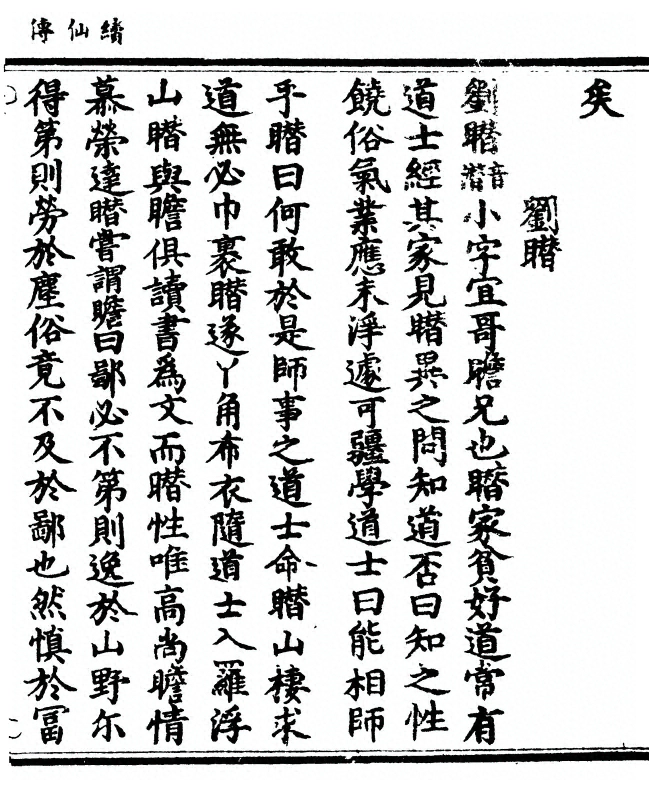 續仙傳
矣
劉㬱
劉㬱音潛小字宜哥瞻兄也㬱家貧好道常有
道士經其家見㬱異之問知道否曰知之性
饒俗氣業應未淨遽可彊學道士曰能相師
乎㬱曰何敢於是師事之道士命㬱山棲求
道無必巾裹㬱遂丫角布衣隨道士入羅浮
山㬱與瞻俱讀書爲文而㬱性唯高尚瞻情
慕榮達㬱嘗謂瞻曰鄙必不第則逸於山野尔
得第則勞於塵俗竟不及於鄙也然慎於冨